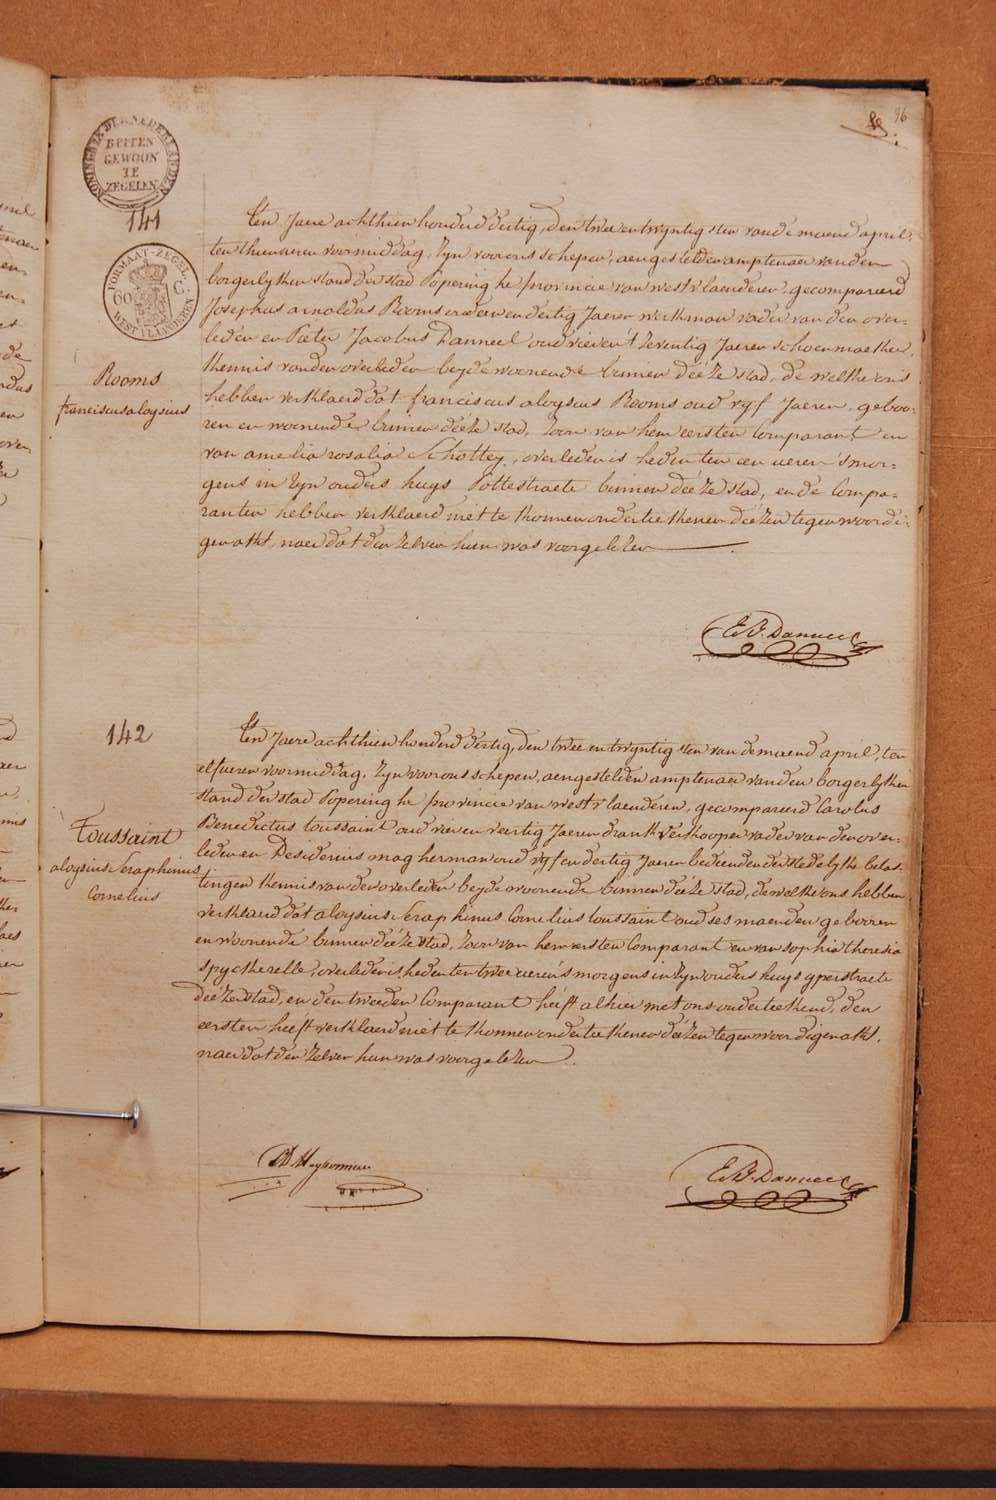 96
KONINGRYK DER NEDERLANDEN
BUITEN
GEWOON
TE
ZEGELEN
141
FORMAAT-ZEGEL.
60 C.
WEST VLAANDEREN
Rooms
franciscus aloysius
Ten Jaere achthien honderd dertig, den twee en twyntigsten van de maend april,
ten thien uren voormiddag, Zyn voor ons schepen, aengestelden amptenaer van den
borgerlyken stand der stad Poperinghe provincie van westvlaenderen, gecompareerd
Josephus arnoldus Rooms een en dertig Jaeren werkman vader van den over-
leden en Pieter Jacobus Danneel oud vier en 't zeventig Jaeren schoenmaeker,
kennis van den overleden beyde woonende binnen deéze stad, de welke ons
hebben verklaerd dat franciscus aloysius Rooms oud vyf Jaeren, geboo-
ren en woonende binnen deéze stad, Zoon van hem eersten Comparant en
van amelia rosalia Schottey, overleden is heden ten een ueren 's mor-
gens in zyn ouders huys Pottestraete binnen deéze stad, en de Compa-
ranten hebben verklaerd niet te konnen onderteekenen deézen tegenwoordi-
gen akt, naer dat den zelven hun was voorgelezen.
E.B. Danneel
142
Toussaint
aloysius Seraphinus
Cornelius
Ten Jaere achthien honderd dertig, den twee en twyntigsten van de maend april, ten
elf ueren voormiddag, Zyn voor ons schepen, aengestelden amptenaer van den borgerlyken
stand der stad Poperinghe provincie van westvlaenderen, gecompareerd Carolus
Benedictus toussaint oud vier en veertig Jaeren drankverkooper vader van den over-
leden en Desiderius magherman oud vyf en dertig Jaeren bedienden der stedelyke belas-
tingen kennis van den overleden beyde woonende binnen deéze stad, de welke ons hebben
verklaerd dat aloysius Seraphinus Cornelius toussaint oud ses maenden gebooren
en woonende binnen deéze stad, Zoon van hem eersten Comparant en van sophia theresia
spyckerelle, overleden is heden ten twee ueren 's morgens in Zyn ouders huys yperstraete
deézer stad, en den tweeden Comparant heéft alhier met ons onderteekend, den
eersten heéft verklaerd niet te konnen onderteekenen deézen tegenwoordigen akt,
naer dat den zelven hun was voorgelezen.
E.B. Danneel